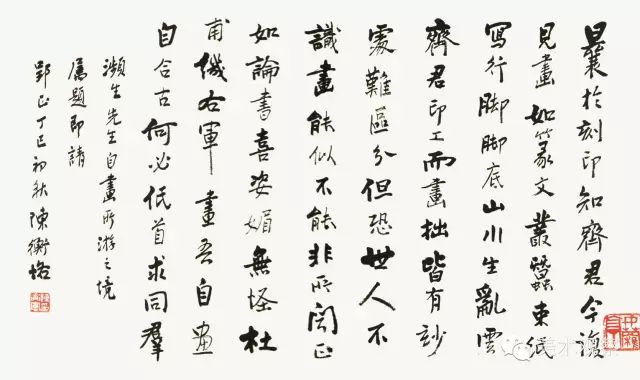 曩於刻印知齊君今復
見畫如篆文叢蠶束紙
寫行脚脚底山川生亂雲
齊君印工而畫拙皆有妙
處難區分但恐世人不
識畫能似不能非所聞正
如論書喜姿媚無怪杜
甫譏右軍畫吾自畫
自合古何必低首求同羣
瀕生先生自畫所游之境
屬題即請
郢正丁巳初秋陳衡恪